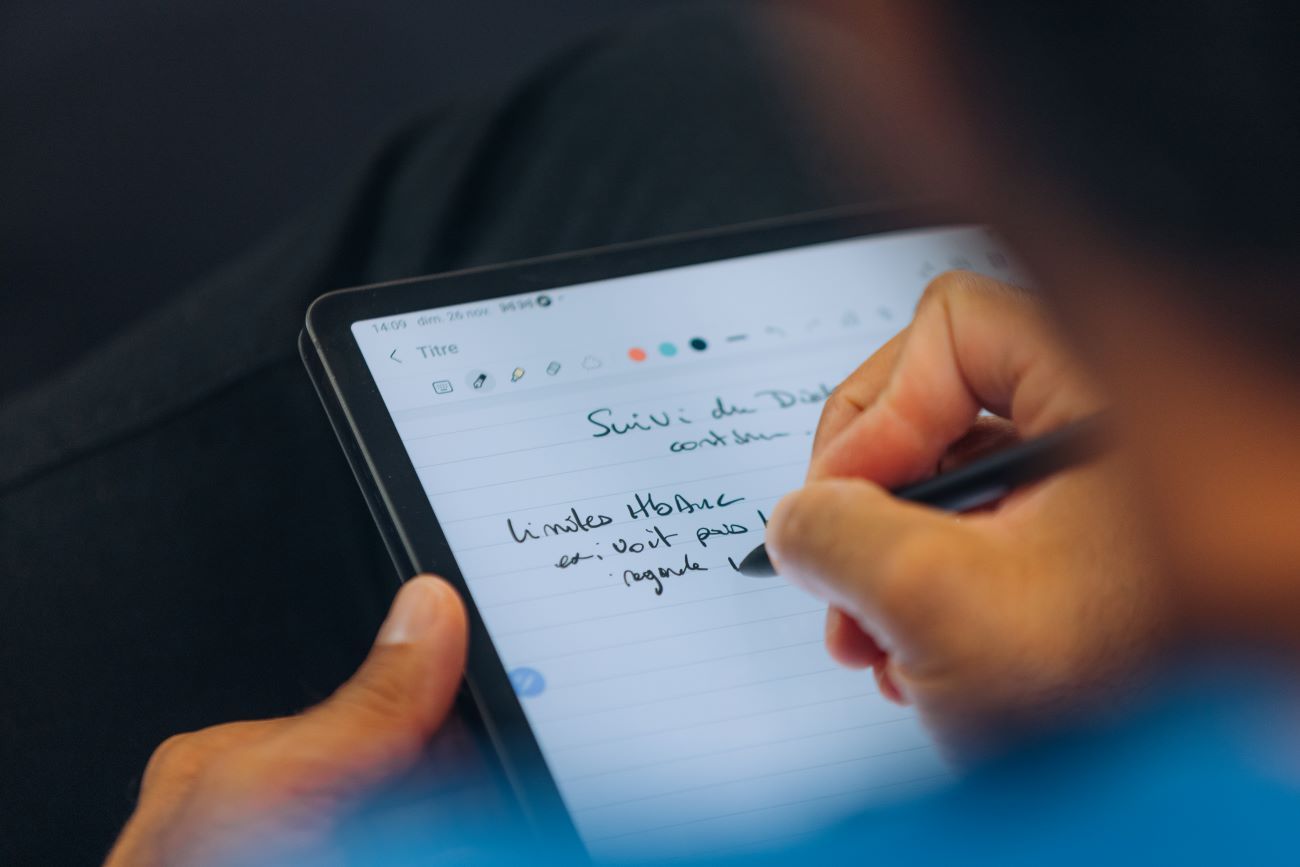 14:09 dim. 26 nov.
Titre
Suivi du
Limites HbA1c
ex: voit pas
regarde